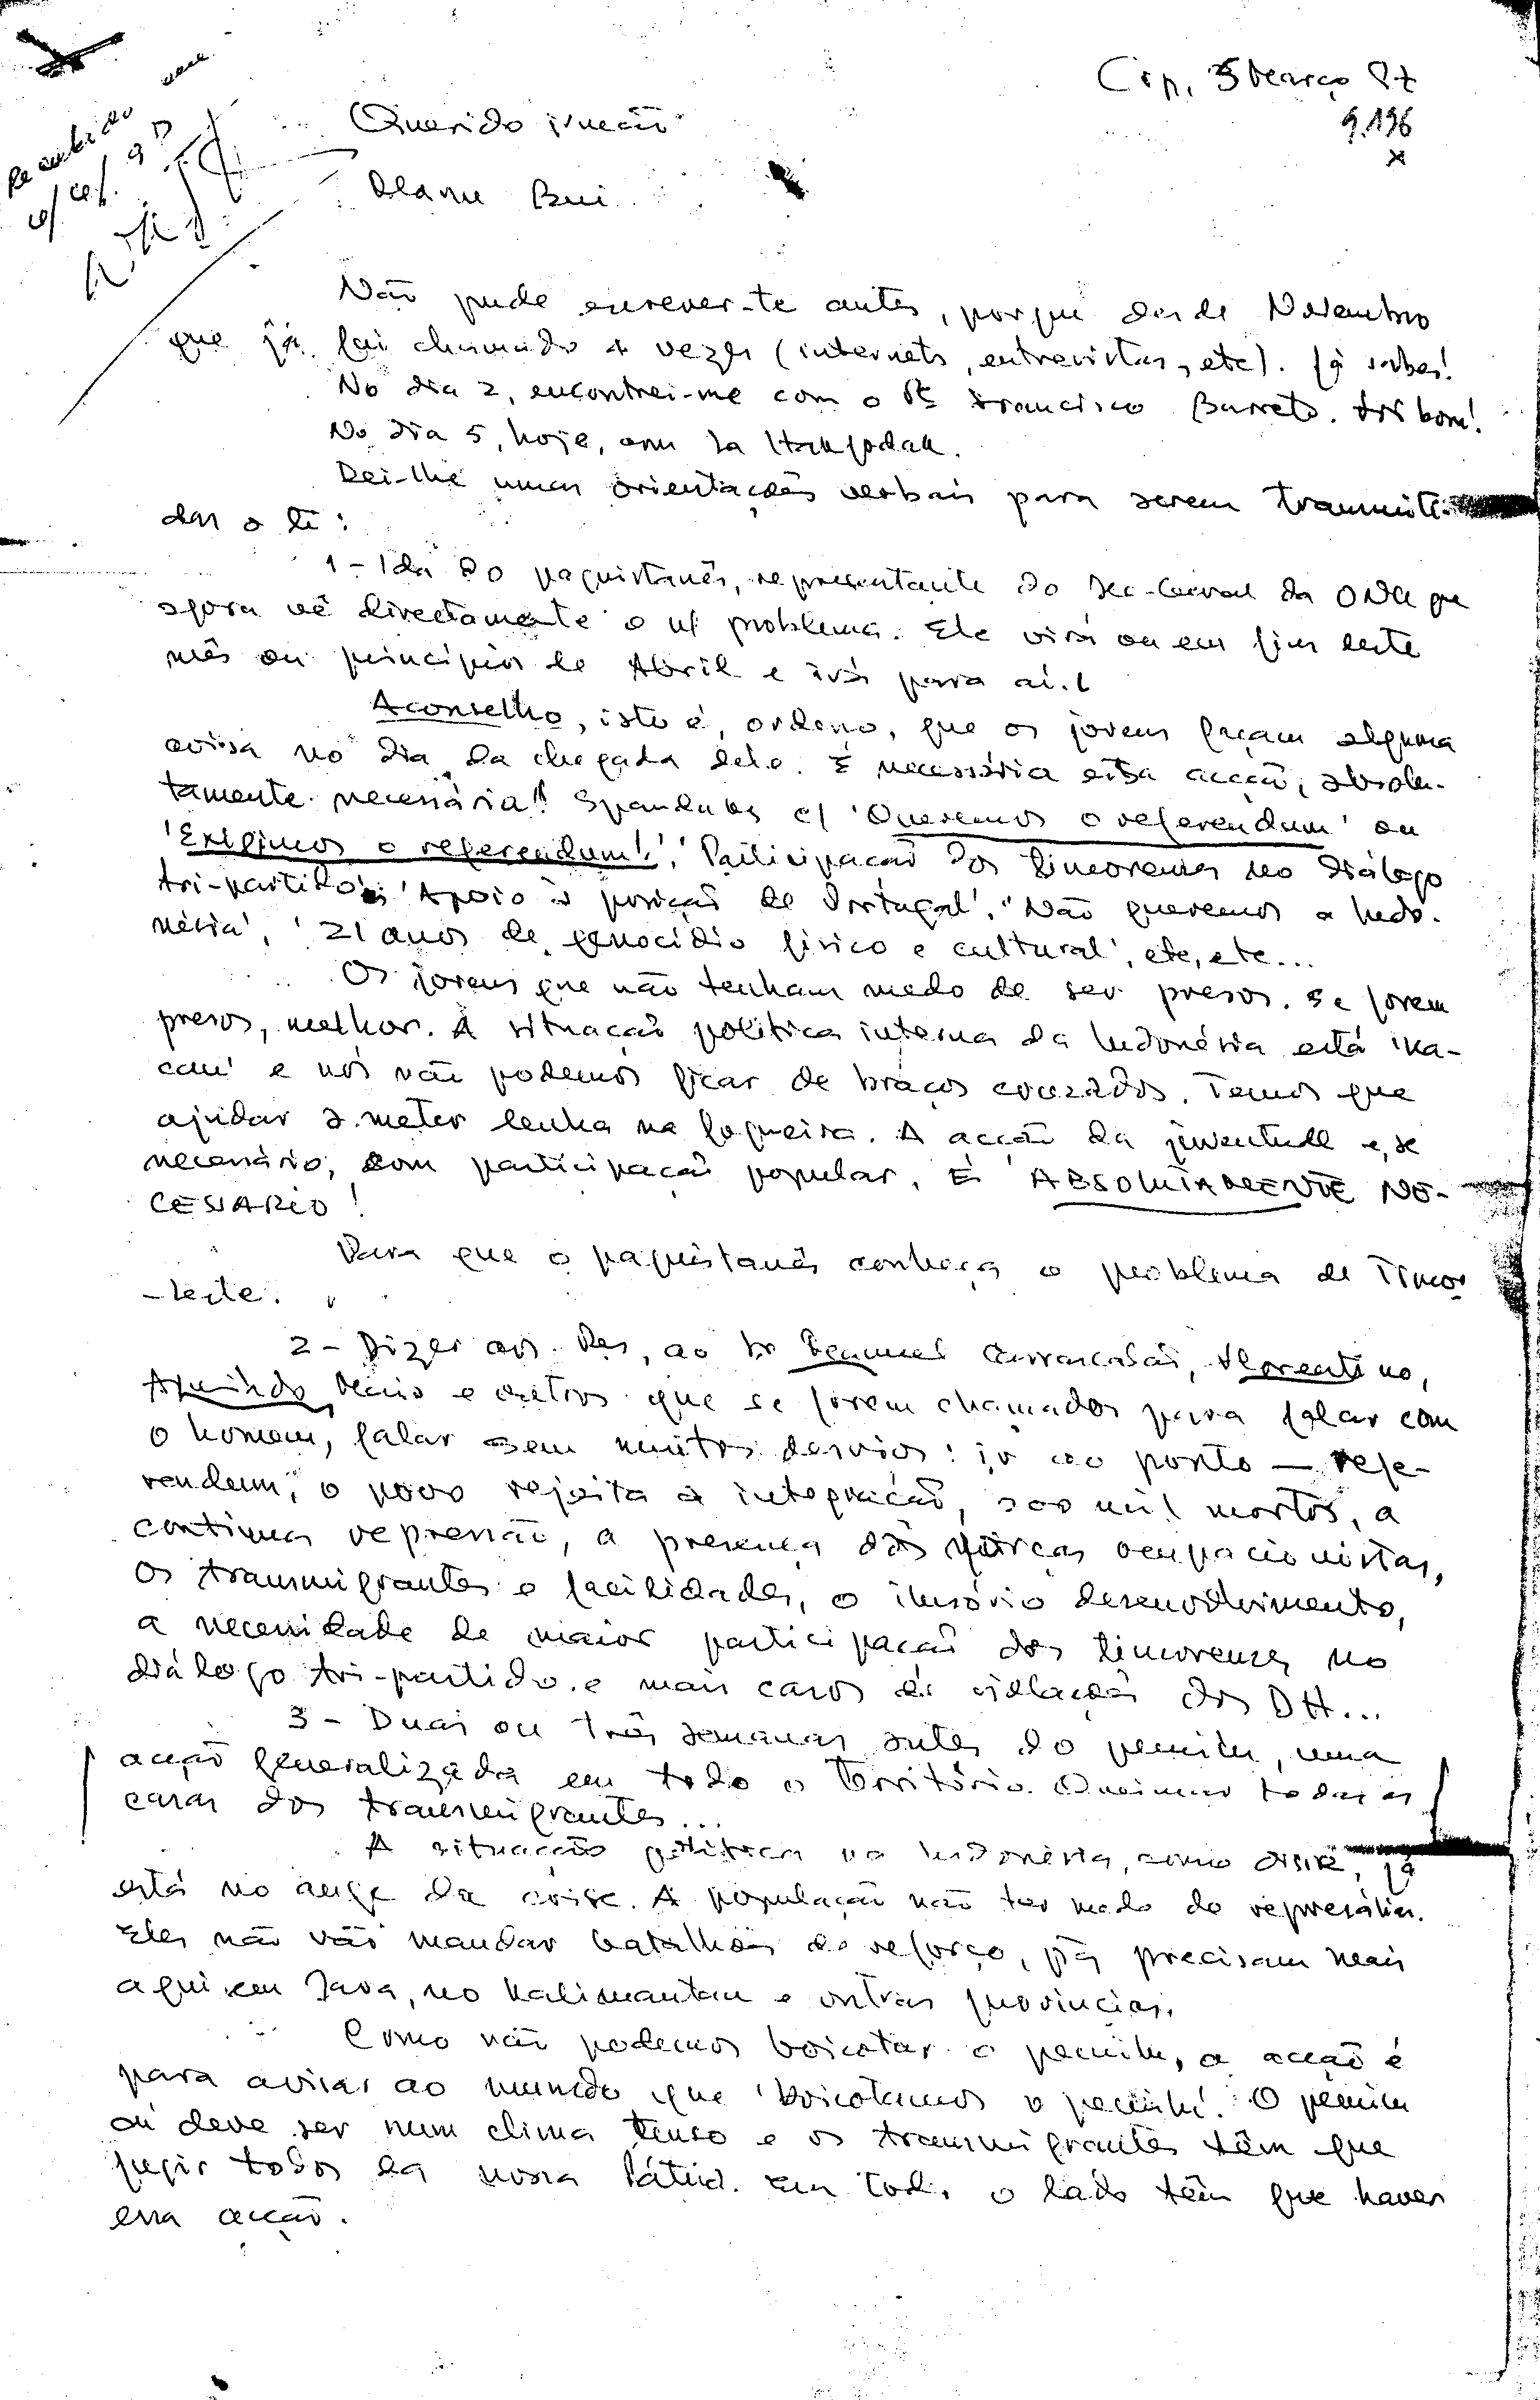 Cip, 5 Março 97
9.196
Querido irmão
Mane Bui
Recebido
Não pude escrever-te antes, porque desde Novembro
que já fui chamado 4 vezes (internets, entrevistas, etc). Já sabes!
No dia 2, encontrei-me com o Sr Francisco Barreto. Foi bom!
No dia 5, hoje, com
Dei-lhe umas orientações verbais para serem transmiti-
das a ti:
1 - Ida do paquistanês, representante do Sec-Geral da ONU que
agora vê directamente o n/ problema. Ele virá ou em fins deste
mês ou princípios de Abril e irá para aí.
Aconselho, isto é, ordeno, que os jovens façam alguma
coisa no dia da chegada dele. É necessária essa acção, absolu-
tamente necessária! Spanduks c/ 'Queremos o referendum' ou
'Exigimos o referendum!', 'Participação dos timorenses no diálogo
tri-partido', 'Apoio à posição de Portugal', 'Não queremos a Indo-
nésia', '21 anos de genocídio físico e cultural', etc, etc...
Os jovens que não tenham medo de ser presos. Se forem
presos, melhor. A situação política interna da Indonésia está 'ka-
cau' e nós não podemos ficar de braços cruzados. Temos que
ajudar a meter lenha na fogueira. A acção da juventude e, se
necessário, com participação popular, É ABSOLUTAMENTE NE-
CESSÁRIO!
Para que o paquistanês conheça o problema de Timor
-Leste.
2 - Dizer aos Pes, ao Sr Manuel Carrascalão, Florentino,
Armindo Maia e outros que se forem chamados para falar com
o homem, falar sem muitos desvios: ir ao ponto — refe-
rendum, o povo rejeita a integração, 200 mil mortos, a
contínua repressão, a presença das forças ocupacionistas,
os transmigrantes e facilidades, o ilusório desenvolvimento,
a necessidade de maior participação dos timorenses no
diálogo tri-partido e mais casos de violações dos DH...
3 - Duas ou três semanas antes do pemilu, uma
acção generalizada em todo o Território. Queimar todas as
casas dos transmigrantes...
A situação política na Indonésia, como disse, já
está no auge da crise. A população não ter medo de represálias.
Eles não vão mandar batalhões de reforço, já precisam mais
aqui em Java, no Kalimantan e outras províncias.
Como não podemos boicotar o pemilu, a acção é
para avisar ao mundo que 'boicotamos o pemilu'. O pemilu
aí deve ser num clima tenso e os transmigrantes têm que
fugir todos da nossa Pátria. Em todo o lado têm que haver
essa acção.